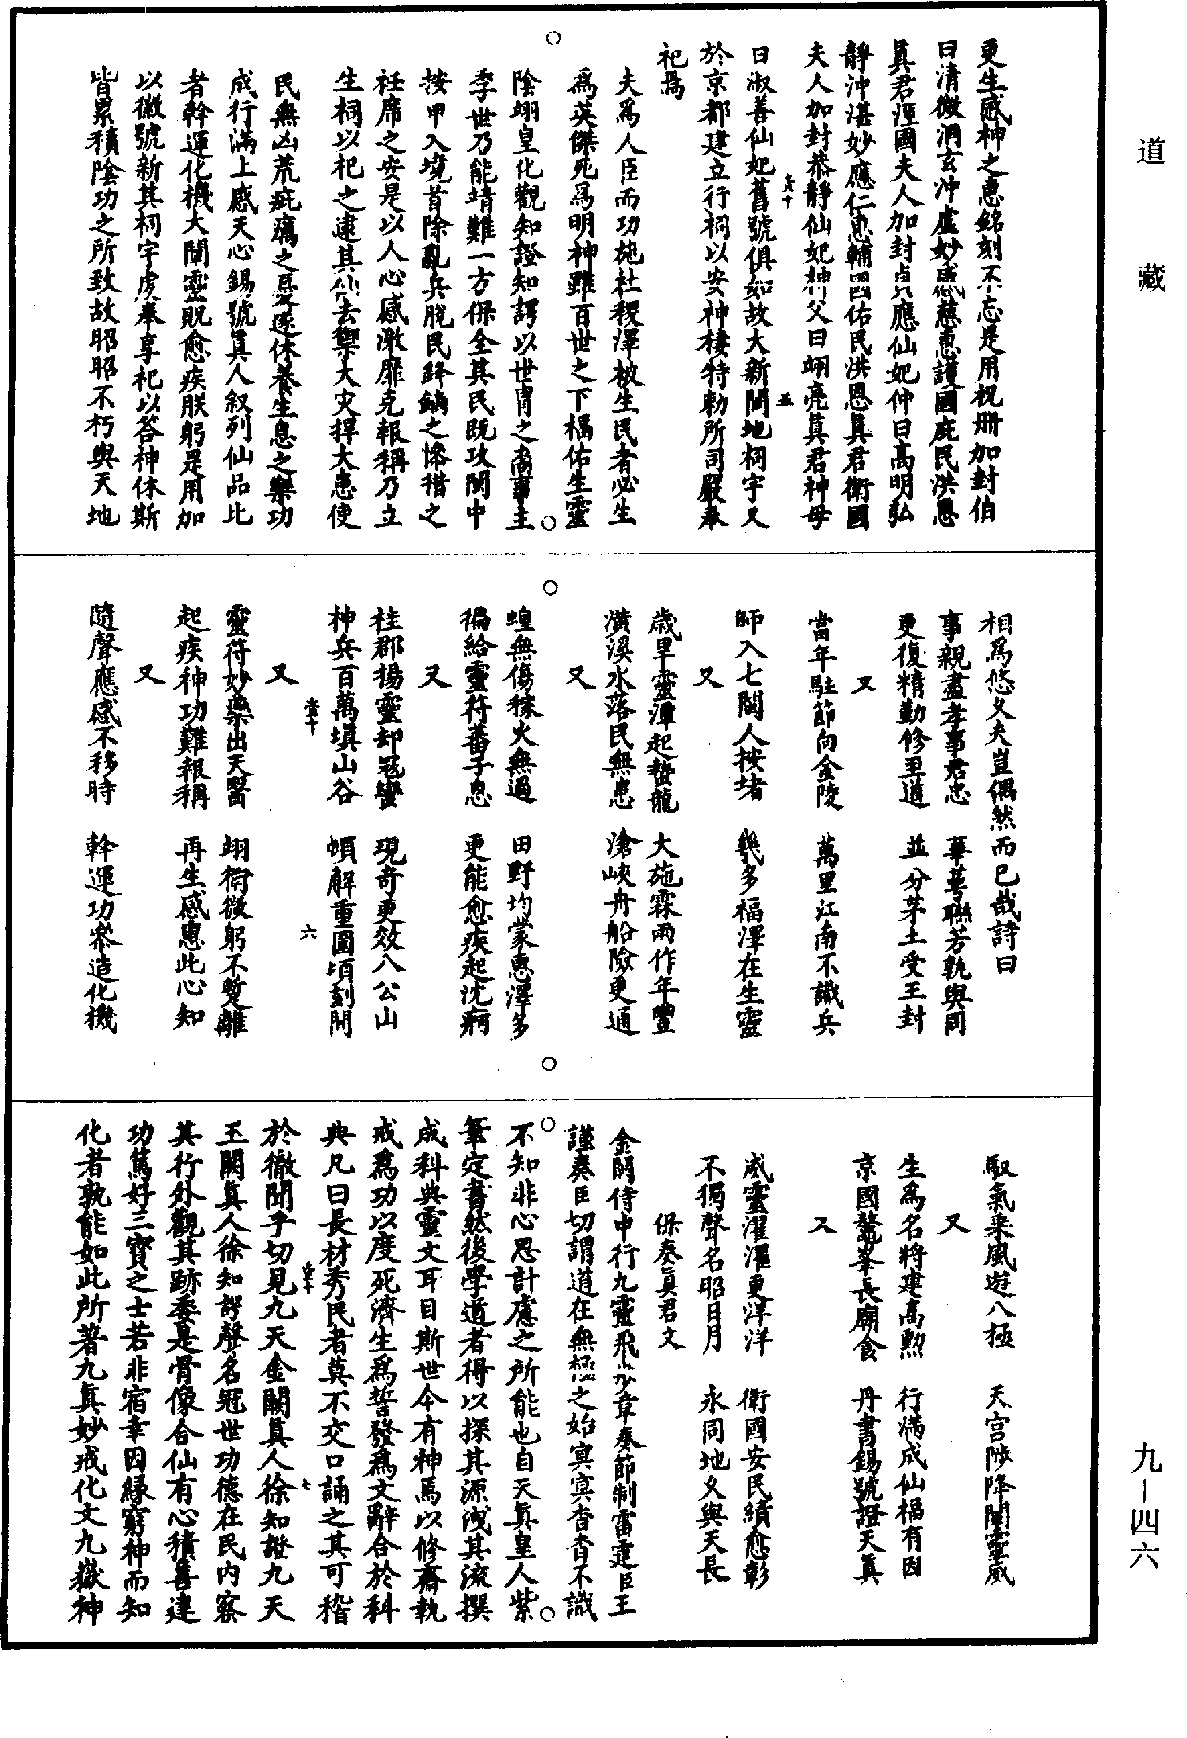 道藏
更生感神之惠銘刻不忘是用祝冊加封伯
曰清微洞玄沖虛妙感慈惠護國庇民洪恩
眞君溼國夫人加封貞應仙妃仲曰高明弘
靜沖湛妙應仁惠輔國佑民洪恩眞君衛國
夫人加封恭靜仙妃神父曰翊亮眞君神母
曰淑善仙妃舊號俱如故大新閩地祠宇又
於京都建立行祠以安神棲特勅所司嚴奉
祀焉
夫爲人臣而功施社稷澤被生民者必生
爲英傑死爲明神雖百世之下福佑生靈
陰翊皇化觀知證知諤以世胄之裔事主
季世乃能靖難一方保全其民既攻閩中
按甲入境首除亂兵脫民鋒鏑之慘措之
衽席之安是以人心感激靡克報稱乃立
生祠以祀之逮其仙去禦大灾捍大患使
民無凶荒疵癘之憂遂休養生息之樂功
成行滿上感天心錫號眞人叙列仙品比
者幹運化機大闡靈貺愈疾朕躬是用加
以徽號新其祠宇虔奉享祀以答神休斯
皆累積陰功之所致故昭昭不朽與天地
相爲悠久夫豈偶然而已哉詩曰
事親盡孝事君忠 華萼聯芳孰與同
更復精勤修至道 並分茅土受王封
又
當年駐節向金陵 萬里江南不識兵
師入七閩人按堵 幾多福澤在生靈
又
歲旱靈潭起蟄龍 大施霖雨作年豐
潢溪水落民無患 滄峽舟船險更通
又
蝗無傷稼火無過 田野均蒙惠澤多
徧給靈符蕃子息 更能愈疾起沈痾
又
桂郡揚靈却寇蠻 現奇更效八公山
神兵百萬塡山谷 頓解重圍頃刻間
又
靈符妙藥出天醫 翊衛微躬不蹔離
起疾神功難報稱 再生感惠此心知
又
隨聲應感不移時 幹運功叅造化機
馭氣乘風遊八極 天宮陟降闡靈威
又
生爲名將建高勲 行滿成仙福有因
京國鼇峯長廟食 丹書錫號證天眞
又
威靈濯濯更洋洋 衛國安民績愈彰
不獨聲名昭日月 永同地久與天長
保奏眞君文
金闕侍中行九靈飛步章奏節制雷霆臣王
謹奏臣切謂道在無極之始冥冥杳杳不識
不知非心思計慮之所能也自天眞皇人紫
筆定書然後學道者得以探其源洩其流撰
成科典靈文耳目斯世今有神焉以修齋執
戒爲功以度死濟生爲誓發爲文辭合於科
典凡曰長材秀民者莫不交口誦之其可稽
於徹聞乎切見九天金闕眞人徐知證九天
玉闕眞人徐知諤聲名冠世功德在民内察
其行外觀其跡委是骨像合仙有心積善建
功篤好三寶之士若非宿幸因縁窮神而知
化者孰能如此所著九眞妙戒化文九嶽神
九—四六